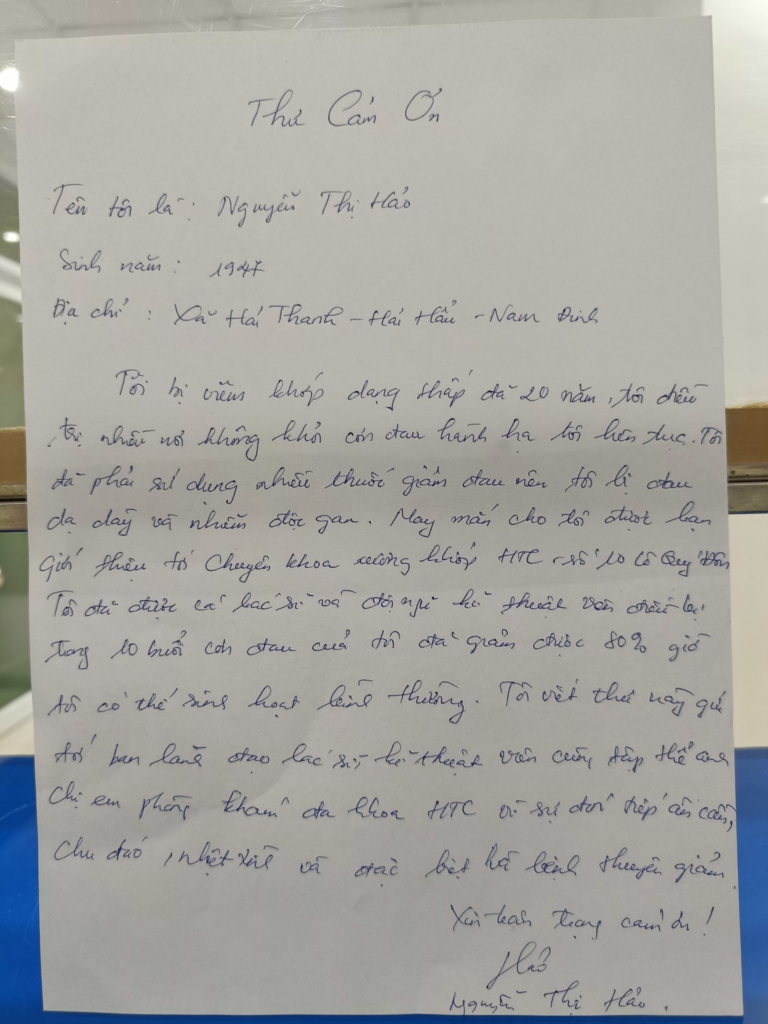 Thư Cảm Ơn
Tên tôi là: Nguyễn Thị Hảo
Sinh năm: 1947
Địa chỉ: Xã Hải Thanh - Hải Hậu - Nam Định
Tôi bị viêm khớp dạng thấp đã 20 năm, tôi điều
trị nhiều nơi không khỏi cơn đau hành hạ tôi liên tục. Tôi
đã phải sử dụng nhiều thuốc giảm đau nên tôi bị đau
dạ dày và nhiễm độc gan. May mắn cho tôi được bạn
giới thiệu tới Chuyên khoa xương khớp HTC - số 10 Lê Quý Đôn
Tôi đã được các bác sĩ và đội ngũ kĩ thuật viên điều trị
trong 10 buổi cơn đau của tôi đã giảm được 80% giờ
tôi có thể sinh hoạt bình thường. Tôi viết thư này gửi
tới ban lãnh đạo bác sĩ, kĩ thuật viên cùng tập thể anh
chị em phòng khám đa khoa HTC vì sự đón tiếp ân cần,
chu đáo, nhiệt tình và đặc biệt là bệnh thuyên giảm.
Xin trân trọng cảm ơn!
Hảo
Nguyễn Thị Hảo.